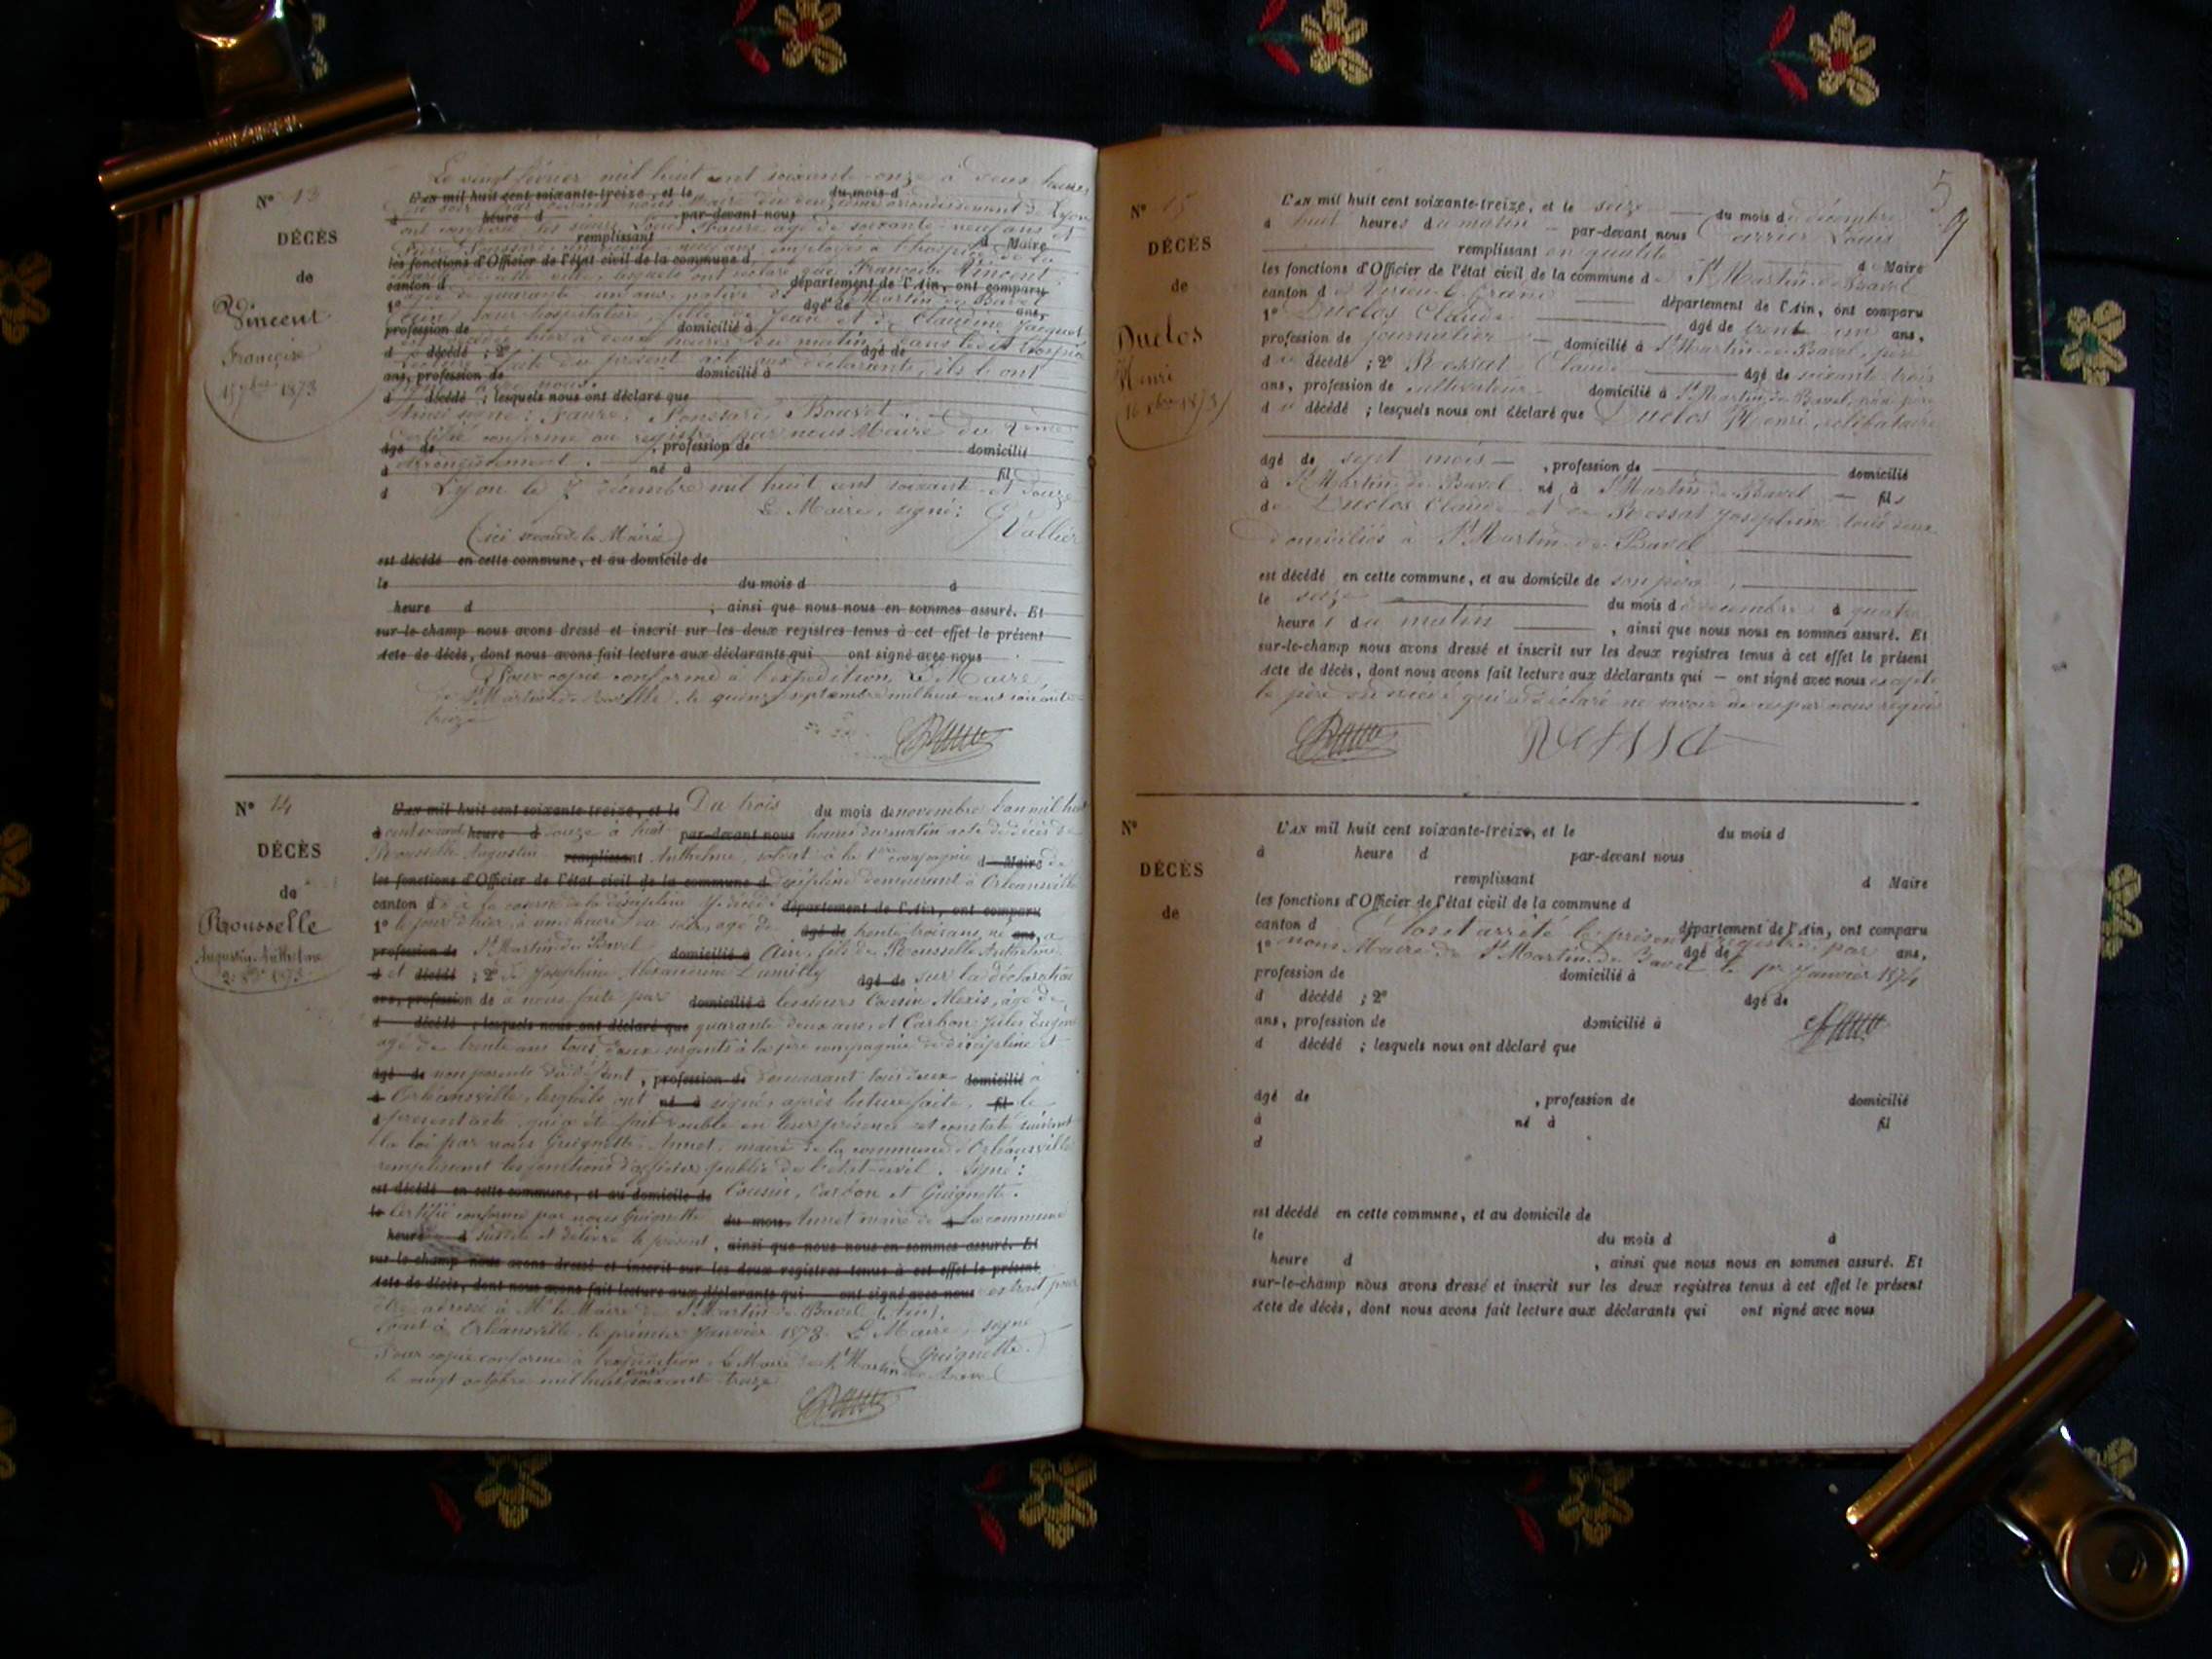 N° 13
DÉCÈS
de
Vincent
Françoise
1873
Le vingt février mil huit cent soixante-onze à deux heures
L'AN mil huit cent soixante-treize, et le du mois d
du soir, par devant nous Maire du deuxième arrondissement de Lyon
à heure d par-devant nous
ont comparu les sieurs Louis Faure âgé de soixante-neuf ans et
remplissant d Maire
les fonctions d'Officier de l'état civil de la commune d
ont déclaré que Françoise Vincent
canton d département de l'Ain, ont comparu
âgée de quarante un ans, native de St Martin de Bavel
1° âgé de ans,
fille de Jean et de Claudine Jacquet
profession de domicilié à
est décédée hier à deux heures du matin, dans ledit hospice
d décédé ; 2° âgé de
Lecture faite du présent acte aux déclarants, ils l'ont
ans, profession de domicilié à
signé avec nous.
d décédé ; lesquels nous ont déclaré que
Ainsi signé : Faure, Bouvet.
Certifié conforme au registre par nous Maire du 2ème
âgé de , profession de domicilié
arrondissement.
à né à fil
d Lyon le 7 décembre mil huit cent soixante et douze
Le Maire, signé : G Vallier
(ici sceau de la Mairie)
est décédé en cette commune, et au domicile de
le du mois d à
heure d ; ainsi que nous nous en sommes assuré. Et
sur-le-champ nous avons dressé et inscrit sur les deux registres tenus à cet effet le présent
acte de décès, dont nous avons fait lecture aux déclarants qui ont signé avec nous
Pour copie conforme à l'expédition, Le Maire
de St Martin de Bavel, le quinze septembre mil huit cent soixante-
treize
N° 14
DÉCÈS
de
Rousselle
Augustin Anthelme
1873
L'AN mil huit cent soixante-treize, et le Du trois du mois de novembre l'an mil huit
à cent soixante heure d douze à huit par-devant nous heures du matin acte de décès de
Rousselle Augustin remplissant Anthelme, soldat à la 1re compagnie d Maire de
les fonctions d'Officier de l'état civil de la commune d discipline demeurant à Orléansville
canton d de la discipline y décédé département de l'Ain, ont comparu
1° le jour d'hier, à une heure du soir, âgé de âgé de trente trois ans, né ans, à
profession de St Martin de Bavel domicilié à Ain, fils de Rousselle Anthelme
d et décédé ; 2° de Joséphine Alexandrine Dumilly âgé de sur la déclaration
ans, profession de à nous faite par domicilié à les sieurs Cousin Alexis, âgé de
d décédé ; lesquels nous ont déclaré que quarante deux ans, et Carbon Jules Eugène
âgé de trente ans tous deux sergents à la 1re compagnie de discipline et
âgé de non parents du défunt, profession de demeurant tous deux domicilié à
à Orléansville, lesquels ont né à signé, après lecture faite, fil le
d présent acte, qui a été fait double en leur présence et constaté suivant
la loi par nous Guignette Annet, maire de la commune d'Orléansville
remplissant les fonctions d'officier public de l'état-civil. Signé :
est décédé en cette commune, et au domicile de Cousin, Carbon et Guignette.
le Certifié conforme par nous Guignette du mois Annet maire de à la commune
heure d susdite et délivré le présent, ainsi que nous nous en sommes assuré. Et
sur-le-champ nous avons dressé et inscrit sur les deux registres tenus à cet effet le présent
acte de décès, dont nous avons fait lecture aux déclarants qui ont signé avec nous extrait pour
être adressé à Mr le Maire de St Martin de Bavel (Ain).
Fait à Orléansville, le premier Janvier 1873. Le Maire, signé
Guignette.
Pour copie conforme à l'expédition Le Maire de St Martin de Bavel
le vingt octobre mil huit cent soixante treize
5
9
N° 15
DÉCÈS
de
Duclos
Henri
16 Xbre 1873
L'AN mil huit cent soixante-treize, et le seize du mois de décembre
à huit heures du matin par-devant nous Carrier Louis
remplissant en qualité d Maire
les fonctions d'Officier de l'état civil de la commune de St Martin de Bavel
canton de Virieu-le-Grand département de l'Ain, ont comparu
1° Duclos Claude âgé de trente un ans,
profession de journalier domicilié à St Martin de Bavel, père
d u décédé ; 2° Rossat Claude âgé de soixante-trois
ans, profession de cultivateur domicilié à St Martin de Bavel, grand père
d u décédé ; lesquels nous ont déclaré que Duclos Henri, célibataire
âgé de sept mois , profession de domicilié
à St Martin de Bavel né à St Martin de Bavel fils
de Duclos Claude et de Rossat Joséphine tous deux
domiciliés à St Martin de Bavel
est décédé en cette commune, et au domicile de son père,
le seize du mois de décembre à quatre
heures du matin , ainsi que nous nous en sommes assuré. Et
sur-le-champ nous avons dressé et inscrit sur les deux registres tenus à cet effet le présent
acte de décès, dont nous avons fait lecture aux déclarants qui – ont signé avec nous excepté
le père du décédé qui a déclaré ne savoir de ce par nous requis
Rossat
N°
DÉCÈS
de
L'AN mil huit cent soixante-treize, et le du mois d
à heure d par-devant nous
remplissant d Maire
les fonctions d'Officier de l'état civil de la commune d
canton d département de l'Ain, ont comparu
Clos et arrêté le présent registre par
1° âgé de ans,
nous Maire de St Martin de Bavel le 1er Janvier 1874
profession de domicilié à
d décédé ; 2° âgé de
ans, profession de domicilié à
d décédé ; lesquels nous ont déclaré que
âgé de , profession de domicilié
à né à fil
d
est décédé en cette commune, et au domicile de
le du mois d à
heure d , ainsi que nous nous en sommes assuré. Et
sur-le-champ nous avons dressé et inscrit sur les deux registres tenus à cet effet le présent
acte de décès, dont nous avons fait lecture aux déclarants qui ont signé avec nous